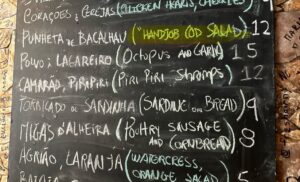 CORAÇÕES & CEREJAS (CHICKEN HEARTS, CHERRIES)
PUNHETA DE BACALHAU ("HANDJOB COD SALAD) 12
POLVO À LAGAREIRO (OCTOPUS AND GARLIC) 15
CAMARÃO, PIRIPIRI (PIRI PIRI SHRIMPS) 12
TORRICADO DE SARDINHA (SARDINE ON BREAD) 9
MIGAS D'ALHEIRA (POULTRY SAUSAGE
AND CORNBREAD) 8
AGRIÃO, LARANJA (WATERCRESS,
ORANGE SALAD) 5